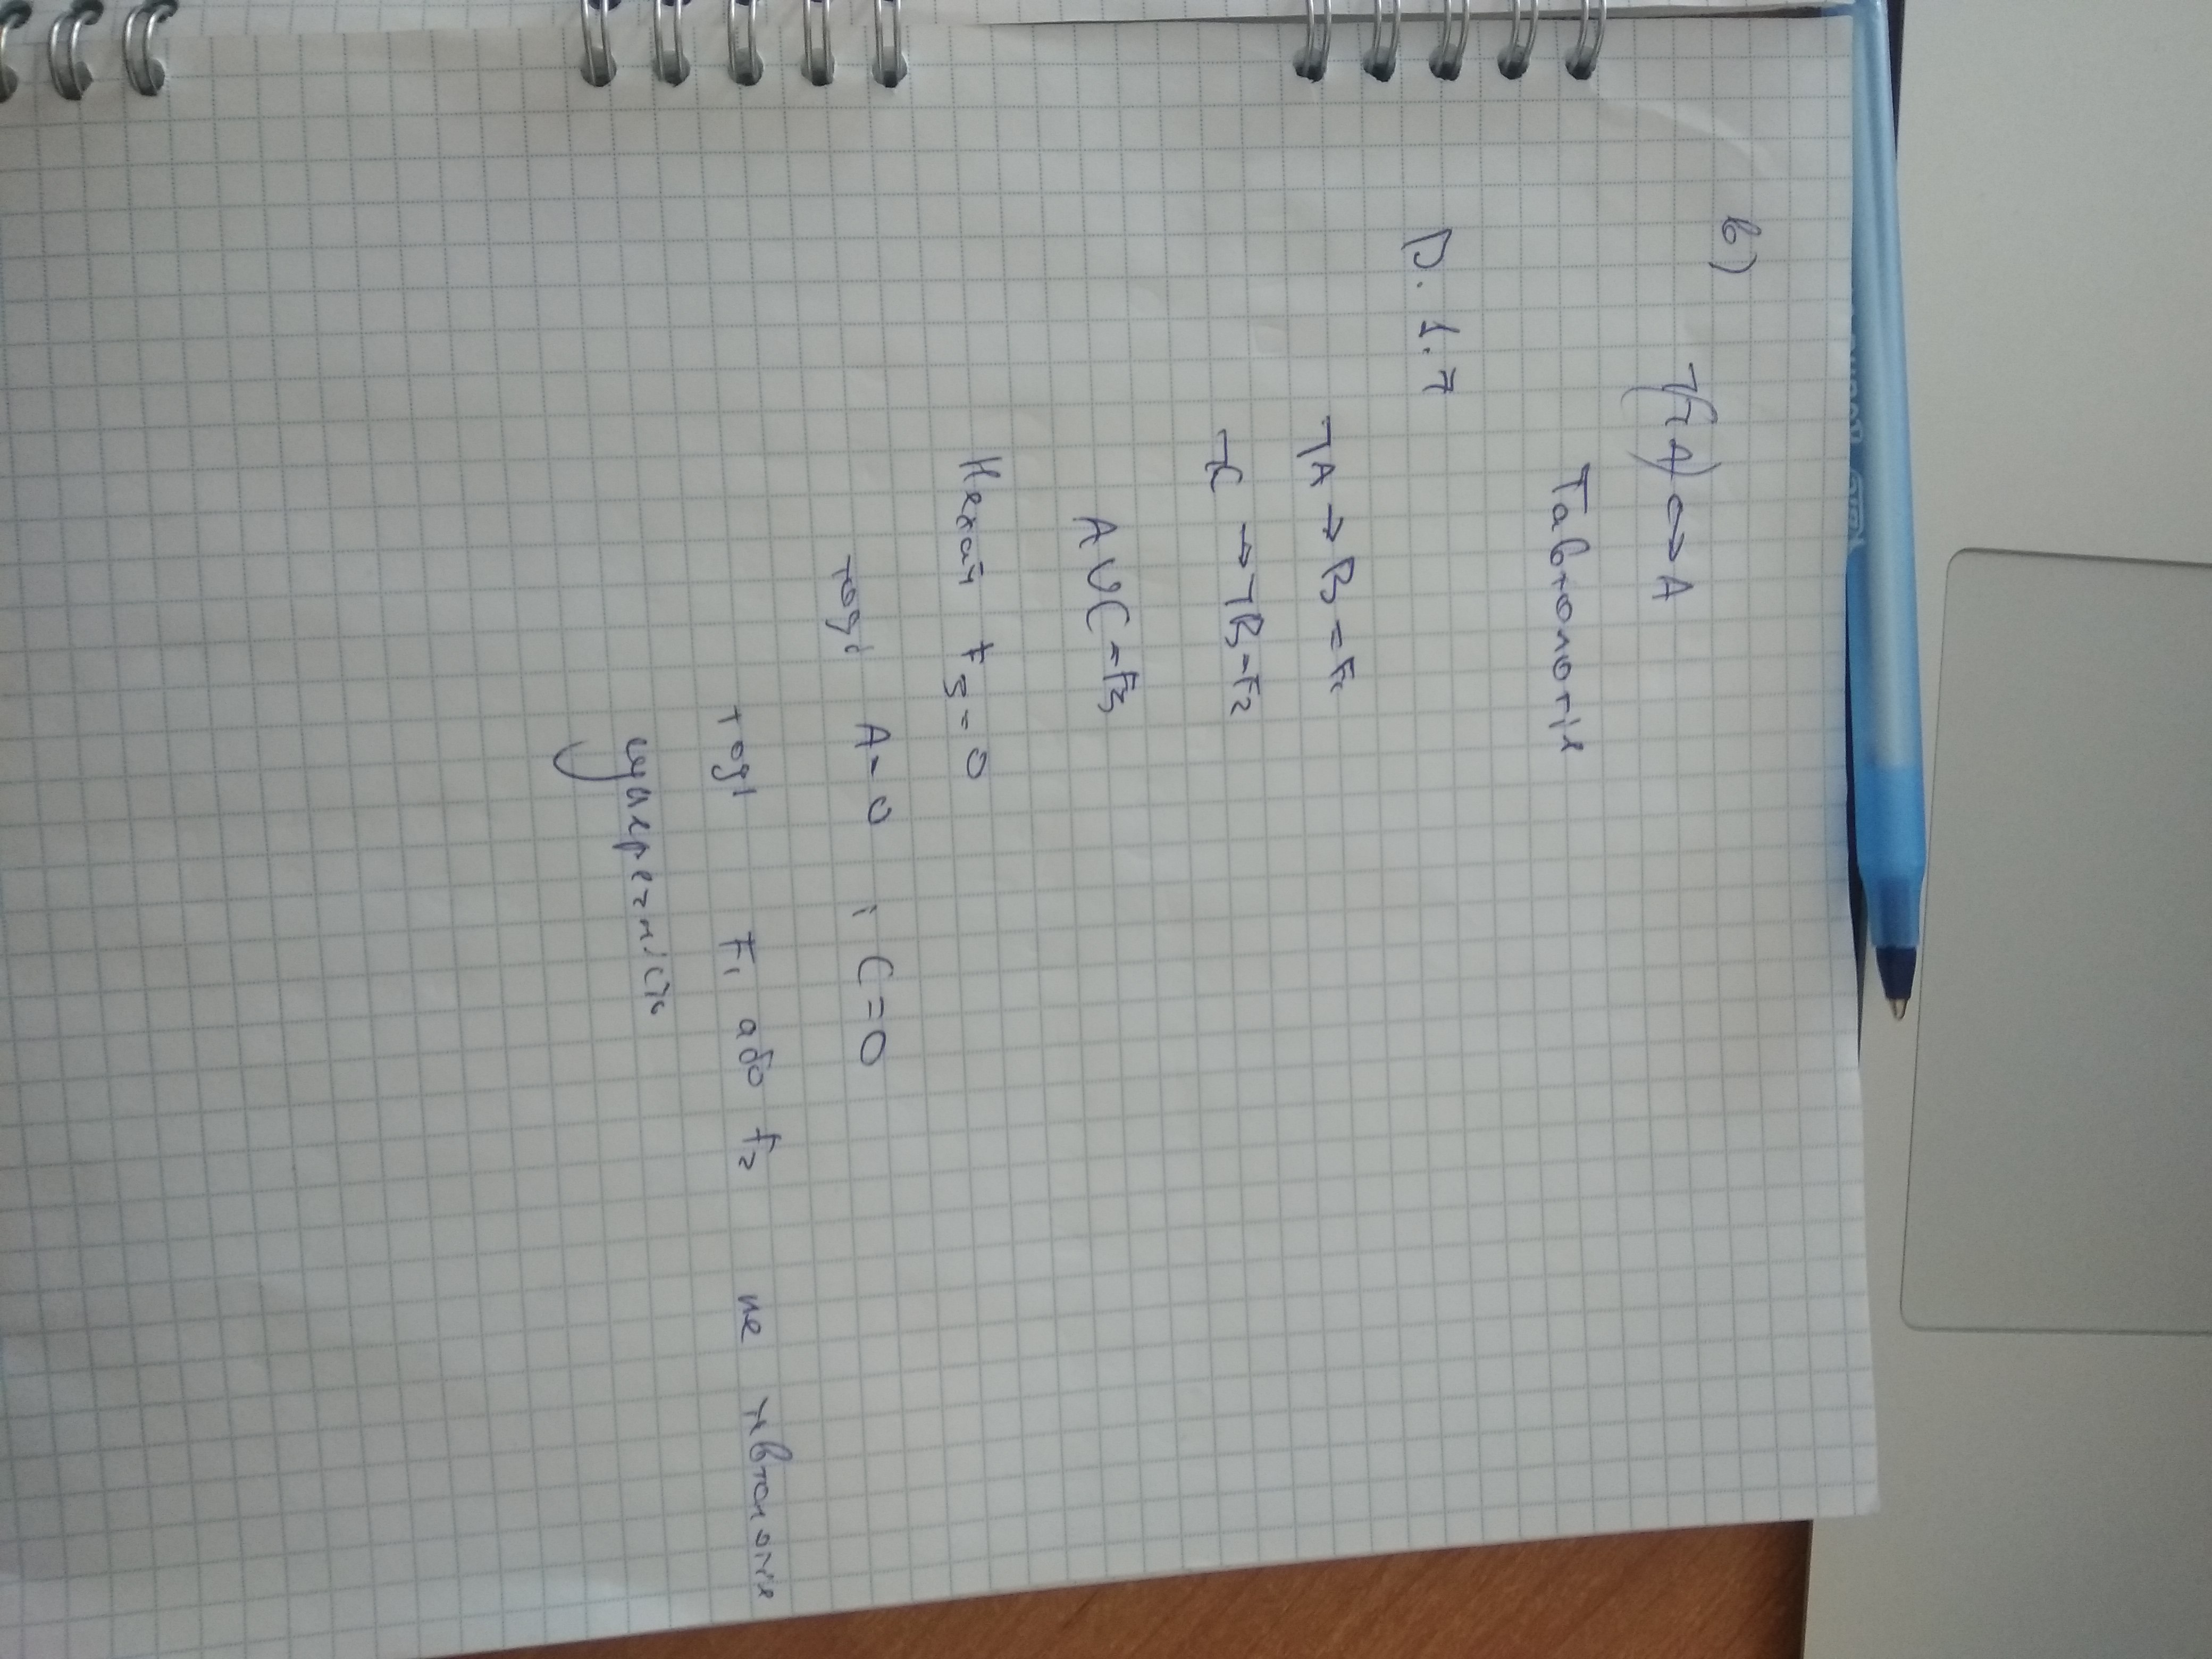 в)
¬(¬A) ⇔ A
Тавтологія
D. 1.7
¬A → B = F₁
¬C → ¬B = F₂
A ∪ C = F₃
Нехай F₃ = 0
тоді A = 0 і C = 0
тоді F₁ або F₂ не тавтологія
суперечність